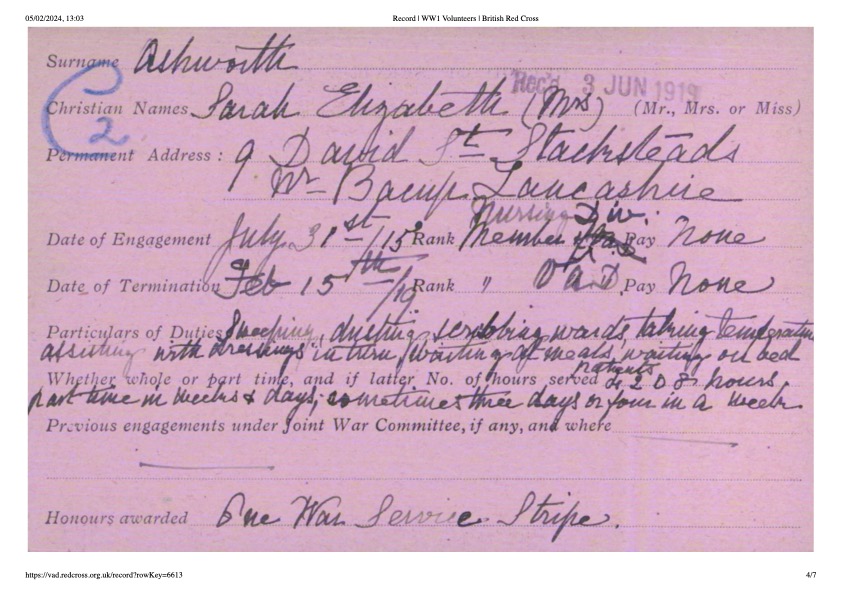 05/02/2024, 13:03
Record | WW1 Volunteers | British Red Cross
Surname Ashworth
Rec'd 3 JUN 1919
Christian Names Sarah Elizabeth (Mrs) (Mr., Mrs. or Miss)
C2
Permanent Address: 9 David St Stacksteads
Nr Bacup Lancashire
Nursing Div.
Date of Engagement July 31st/15 Rank Member Pay None
Date of Termination Feb 15th/19 Rank " VAD Pay None
Particulars of Duties Sweeping, dusting, scrubbing wards, taking temperature
assisting with dressings in turn, waiting at meals, waiting on bed
patients
Whether whole or part time, and if latter No. of hours served 4208 hours,
part time in weeks & days; sometimes three days or four in a week.
Previous engagements under Joint War Committee, if any, and where
Honours awarded One War Service Stripe.
https://vad.redcross.org.uk/record?rowKey=6613
4/7